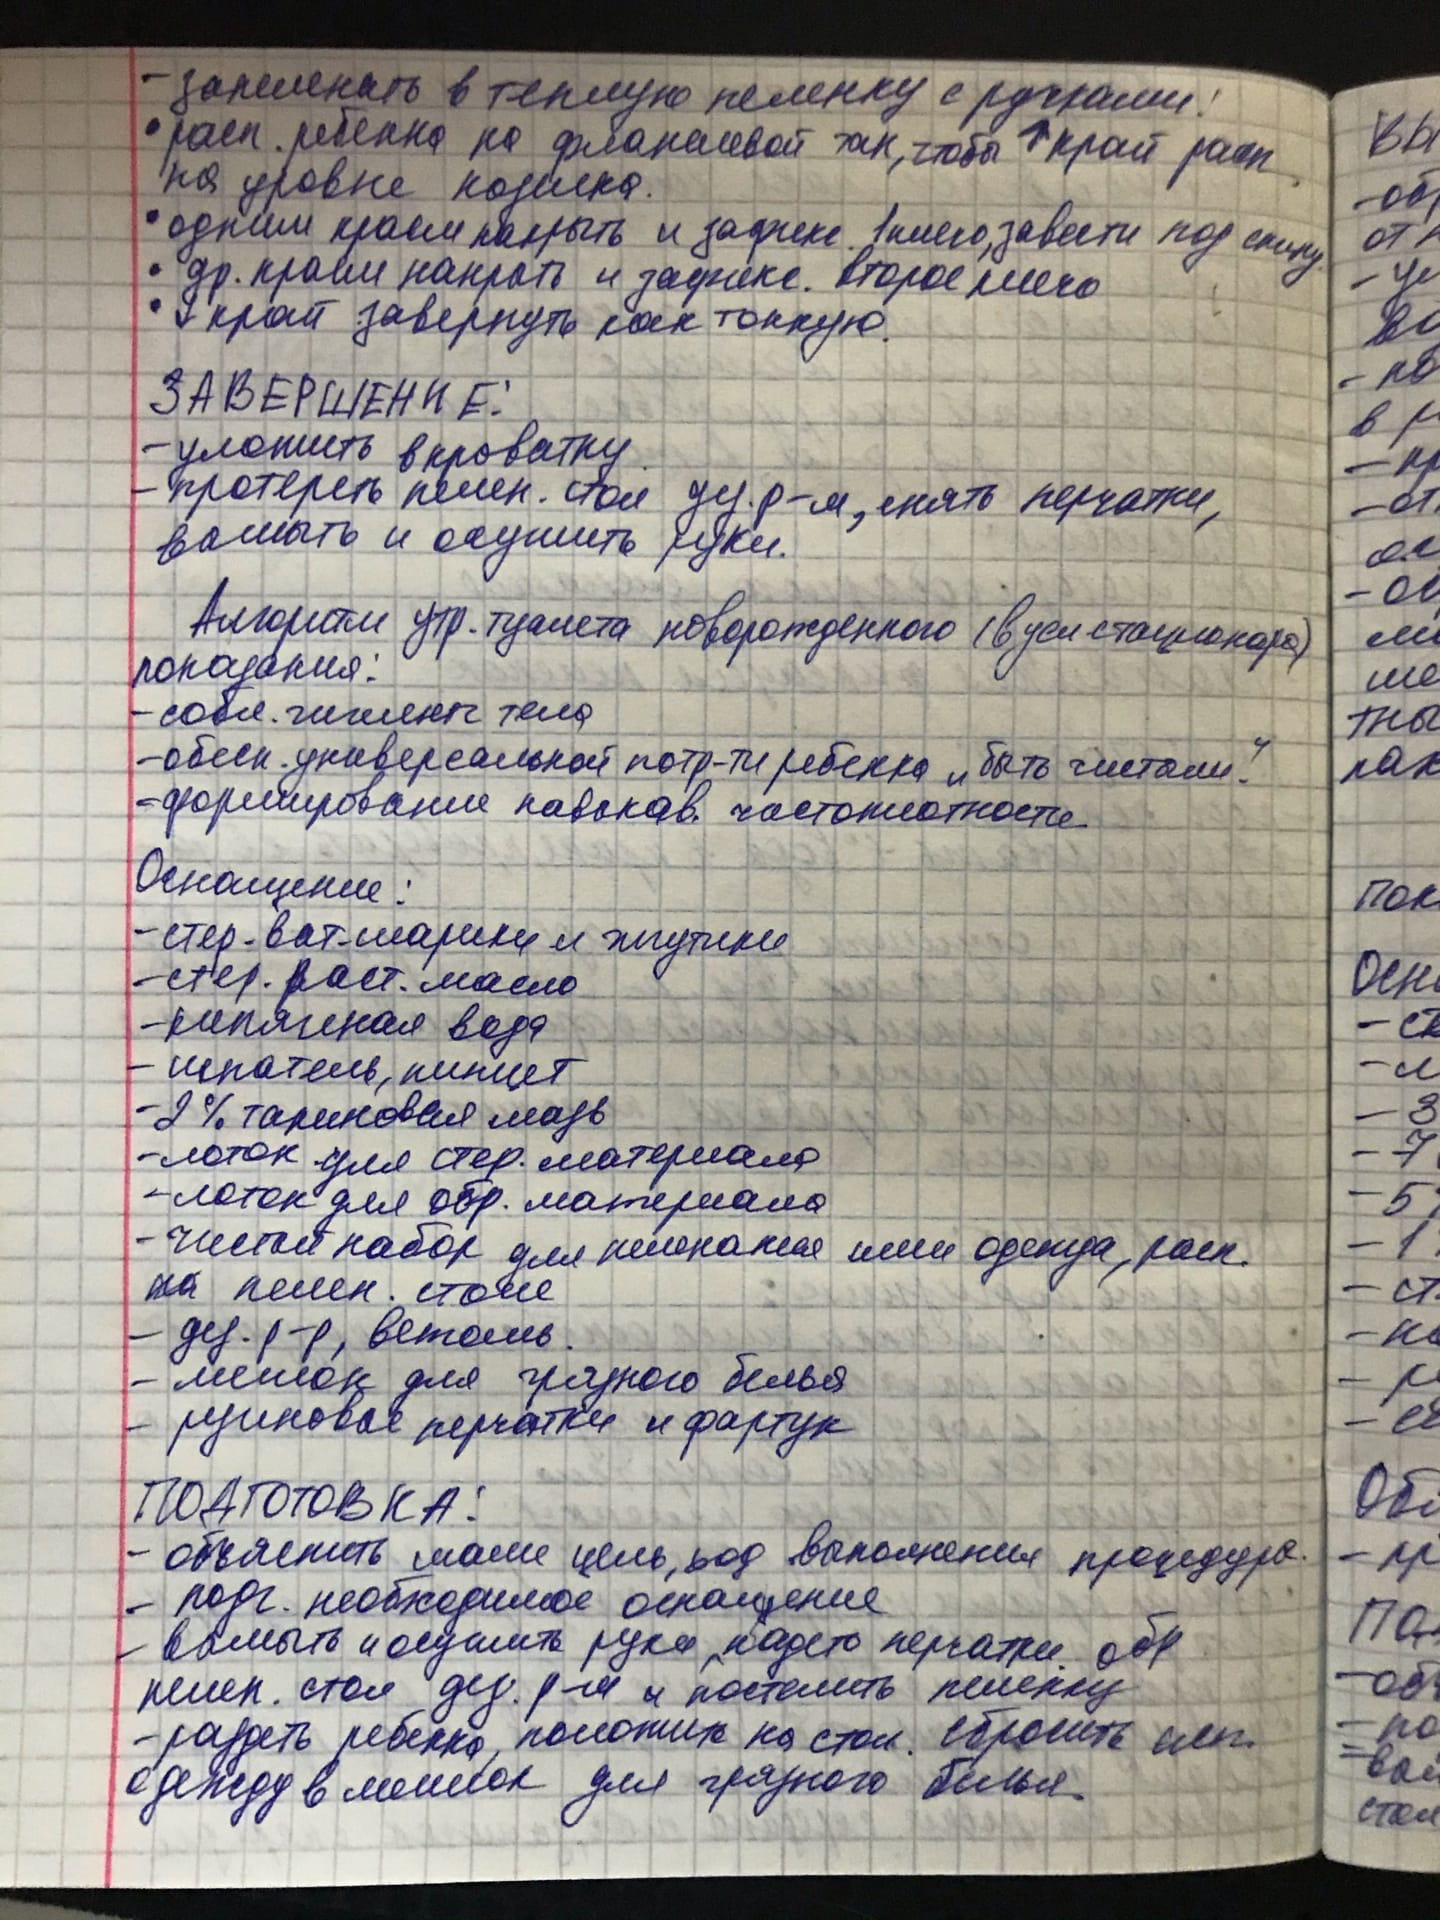 - запеленать в теплую пеленку с ручками!
• расп. ребенка на фланелевой так, чтобы ↑ край расп.
на уровне козелка.
• одним краем накрыть и зафикс. 1 плечо, завести под спину.
• др. краем накрыть и зафикс. второе плечо
• ↓ край завернуть как тонкую.
ЗАВЕРШЕНИЕ:
- уложить в кроватку
- протереть пелен. стол дез. р-м, снять перчатки,
вымыть и осушить руки.
Алгоритм утр. туалета новорожденного (в усл стационара)
показания:
- собл. гигиены тела
- обесп. универсальной потр-ти ребенка „быть чистым"
- формирование навыков. чистоплотности
Оснащение:
- стер. ват. шарики и жгутики
- стер. раст. масло
- кипяченая вода
- шпатель, пинцет
- 2% таниновая мазь
- лоток для стер. материала
- лоток для обр. материала
- чистый набор для пеленания или одежда, расп.
на пелен. столе
- дез. р-р, ветошь.
- мешок для грязного белья
- резиновые перчатки и фартук
ПОДГОТОВКА:
- объяснить маме цель, ход выполнения процедуры.
- подг. необходимое оснащение
- вымыть и осушить руки, надеть перчатки. обр
пелен. стол дез. р-м и постелить пеленку
- раздеть ребенка, положить на стол. сбросить
одежду в мешок для грязного белья.
ВЫ
- обр
от
-
- по
в
-
-
- об
ше
тны
пак
Пок
Осн
-
-
- 3
- 7
- 5
- 1
- ст.
- на
-
-
Обя
- пр
Под
- объ
- по
- вым
стол